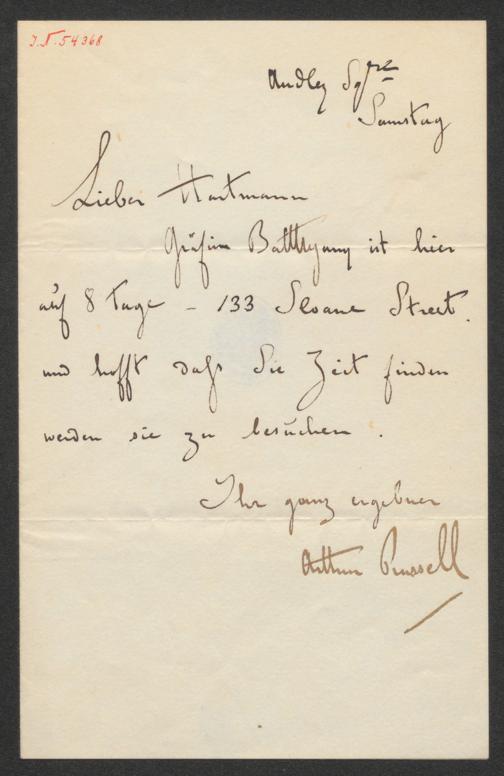 I.N. 54368
Audley Sqre
Samstag
Lieber Hartmann
Gräfin Batthyany ist hier
auf 8 Tage – 133 Sloane Street.
und hofft daß Sie Zeit finden
werden sie zu besuchen.
Ihr ganz ergebner
Arthur Russell